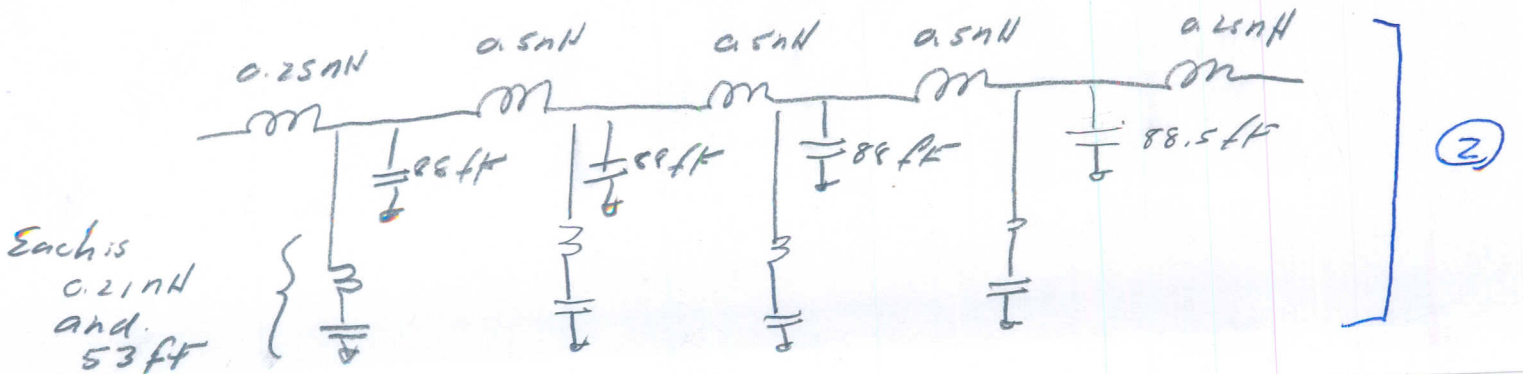 0.25nH
0.5nH
0.5nH
0.5nH
0.25nH
88fF
88fF
88fF
88.5fF
2
Each is
0.21nH
and.
53fF